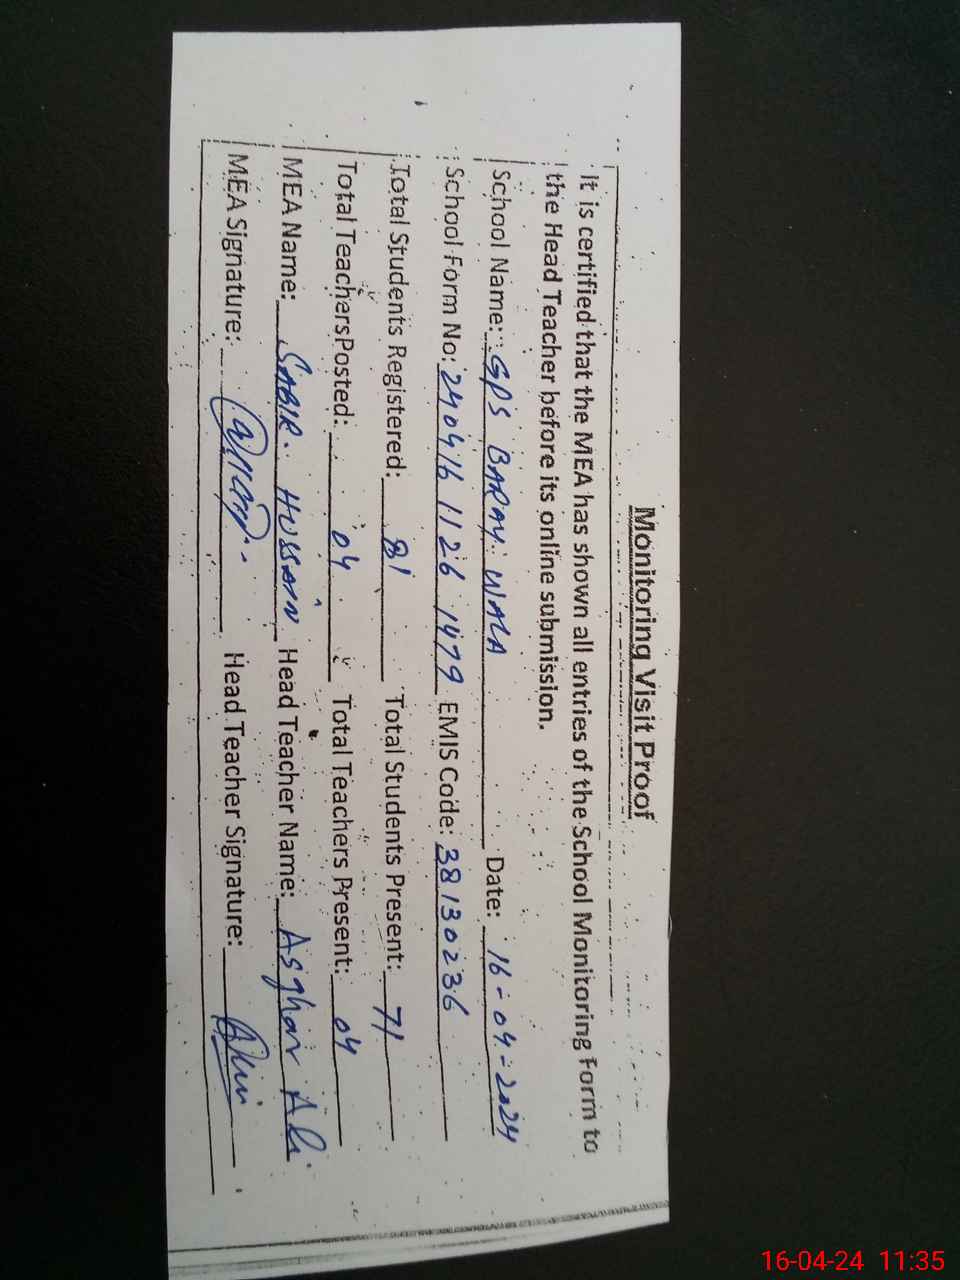 Monitoring Visit Proof
It is certified that the MEA has shown all entries of the School Monitoring Form to
the Head Teacher before its online submission.
School Name: GPS BARAY WALA Date: 16-04-2024
School Form No: 240416 1126 1479 EMIS Code: 38130236
Total Students Registered: 81 Total Students Present: 71
Total Teachers Posted: 04 Total Teachers Present: 04
MEA Name: SABIR HUSSAIN Head Teacher Name: Asghar Ali
MEA Signature: Head Teacher Signature:
16-04-24 11:35